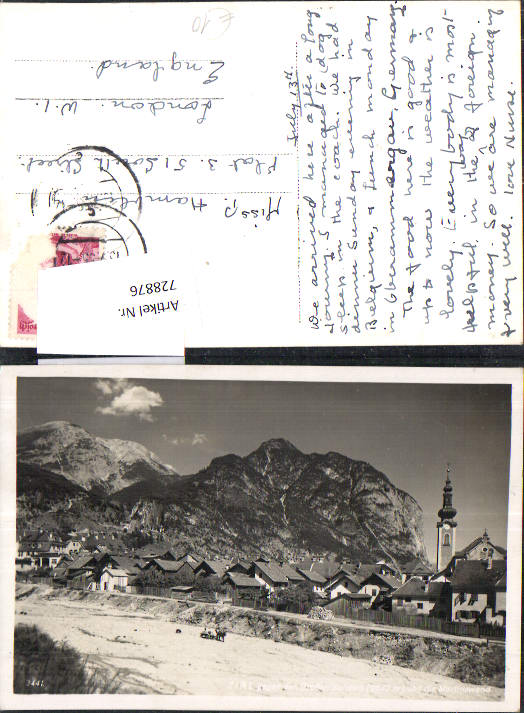 July 13th.
We arrived here after a long
journey I managed to (dog
sleep in the coach. We had
dinner Sunday evening in
Belgium, & lunch monday
in Oberammergau, Germany.
The food here is good &
up to now the weather is
lovely. Everybody is most
helpful in the way of foreign
money. So we are managing
very well. love Nurse.
Miss P
Flat 3. 51 South Street
London. W.1.
England.
£10
Artikel Nr.
728876
3441
und die Martinswand